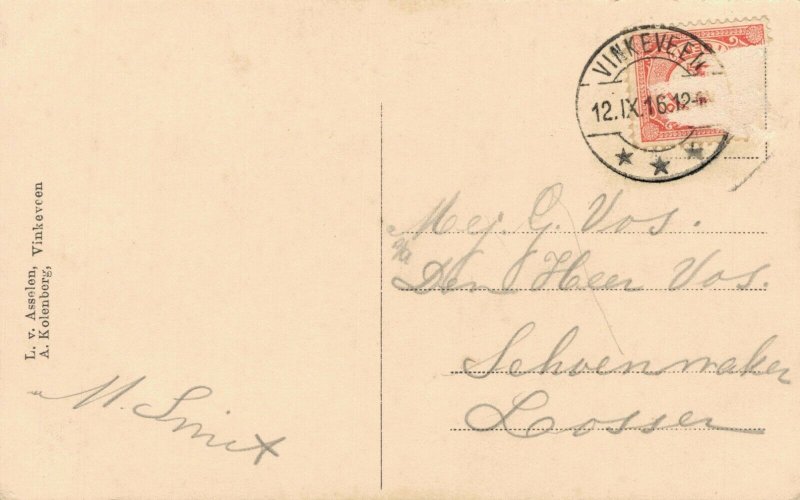 L. v. Asselen, Vinkeveen
A. Kolenberg,
M. Smit
VINKEVEEN
12.IX.16.12-
Mej. G. Vos.
p/a
Den Heer Vos.
Schoenmaker
Losser